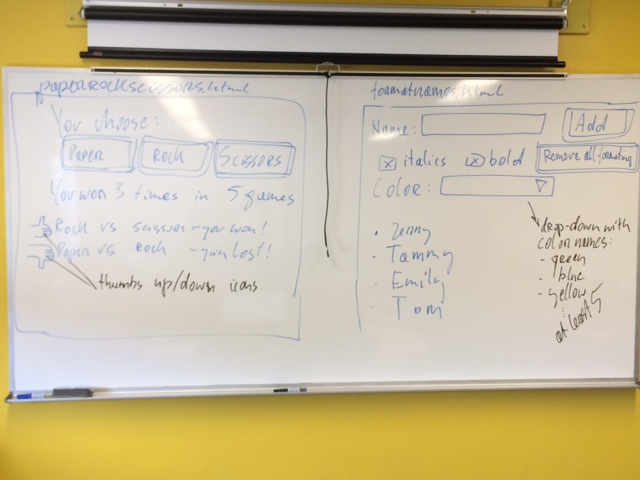 paperrockscissors.html
You choose:
Paper Rock Scissors
You won 3 times in 5 games
Rock vs scissors - you won!
Paper vs Rock - you lost!
thumbs up/down icons
formatnames.html
Name: Add
italics bold Remove all formatting
Color:
Jenny
Tammy
Emily
Tom
drop-down with
color names:
- green
- blue
- yellow
at least 5